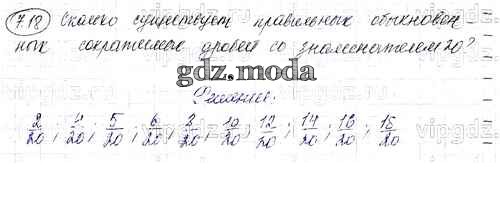 7.18 Сколько существует правильных обыкновен
ных сократимых дробей со знаменателем 20?
gdz.moda
Решение:
2/20 ; 4/20 ; 5/20 ; 6/20 ; 8/20 ; 10/20 ; 12/20 ; 14/20 ; 16/20 ; 15/20